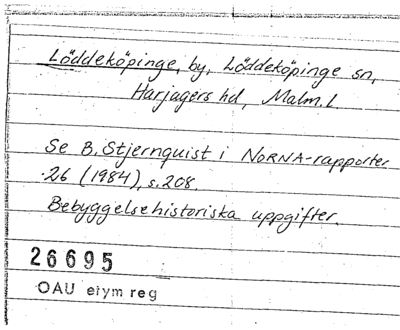 Löddeköpinge, by, Löddeköpinge sn,
Harjagers hd, Malm.l.
Se B. Stjernquist i NORNA-rapporter
26 (1984), s. 208.
Bebyggelsehistoriska uppgifter.
26695
OAU etym reg